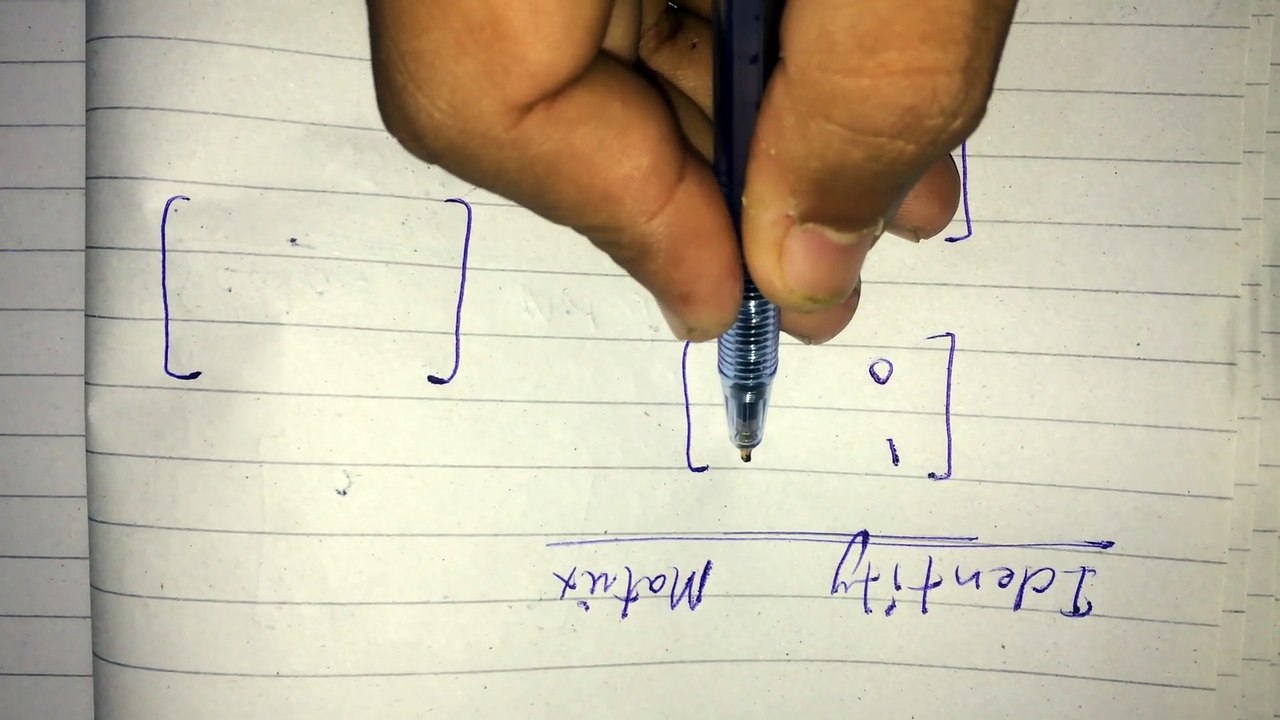 Identity Matrix
1
0